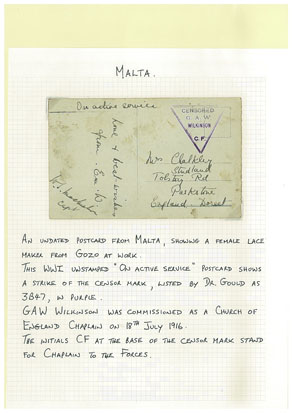 MALTA.
On active service
CENSORED
G A W
WILKINSON
C.F.
Mrs Chalkley
Studland
Tolstoy Rd
Parkstone
England. Dorset
Love & best wishes
from
AN UNDATED POSTCARD FROM MALTA, SHOWING A FEMALE LACE
MAKER FROM GOZO AT WORK.
THIS WWI UNSTAMPED "ON ACTIVE SERVICE" POSTCARD SHOWS
A STRIKE OF THE CENSOR MARK, LISTED BY DR. GOULD AS
3B47, IN PURPLE.
GAW WILKINSON WAS COMMISSIONED AS A CHURCH OF
ENGLAND CHAPLAIN ON 18TH JULY 1916.
THE INITIALS CF AT THE BASE OF THE CENSOR MARK STAND
FOR CHAPLAIN TO THE FORCES.